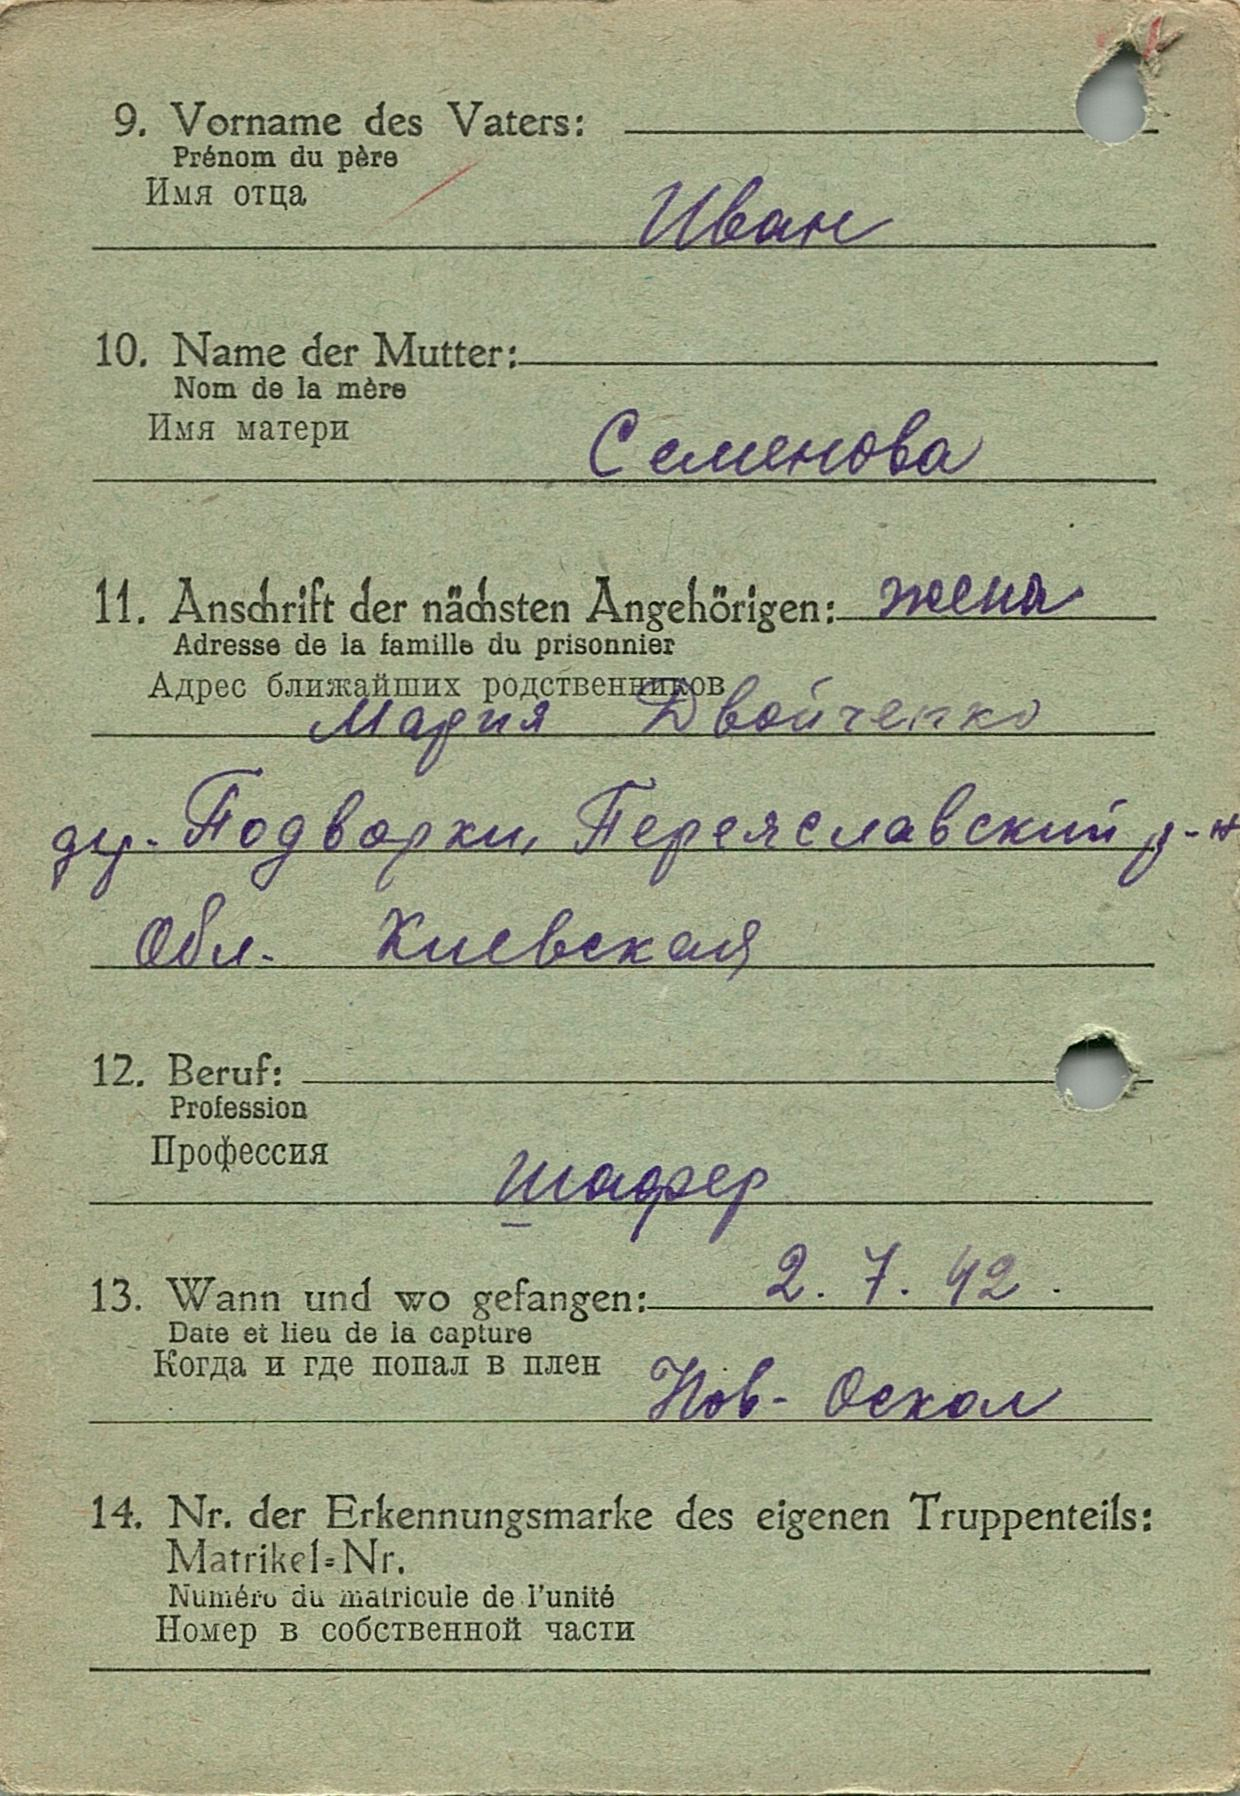 9. Vorname des Vaters:
Prénom du père
Имя отца
Иван
10. Name der Mutter:
Nom de la mère
Имя матери
Семенова
11. Anschrift der nächsten Angehörigen: жена
Adresse de la famille du prisonnier
Адрес ближайших родственников
Мария Двойченко
др. Подворки, Переяславский р-н
Обл. Киевская
12. Beruf:
Profession
Профессия
шофер
13. Wann und wo gefangen: 2. 7. 42.
Date et lieu de la capture
Когда и где попал в плен
Нов-Оскол
14. Nr. der Erkennungsmarke des eigenen Truppenteils:
Matrikel-Nr.
Numéro du matricule de l'unité
Номер в собственной части